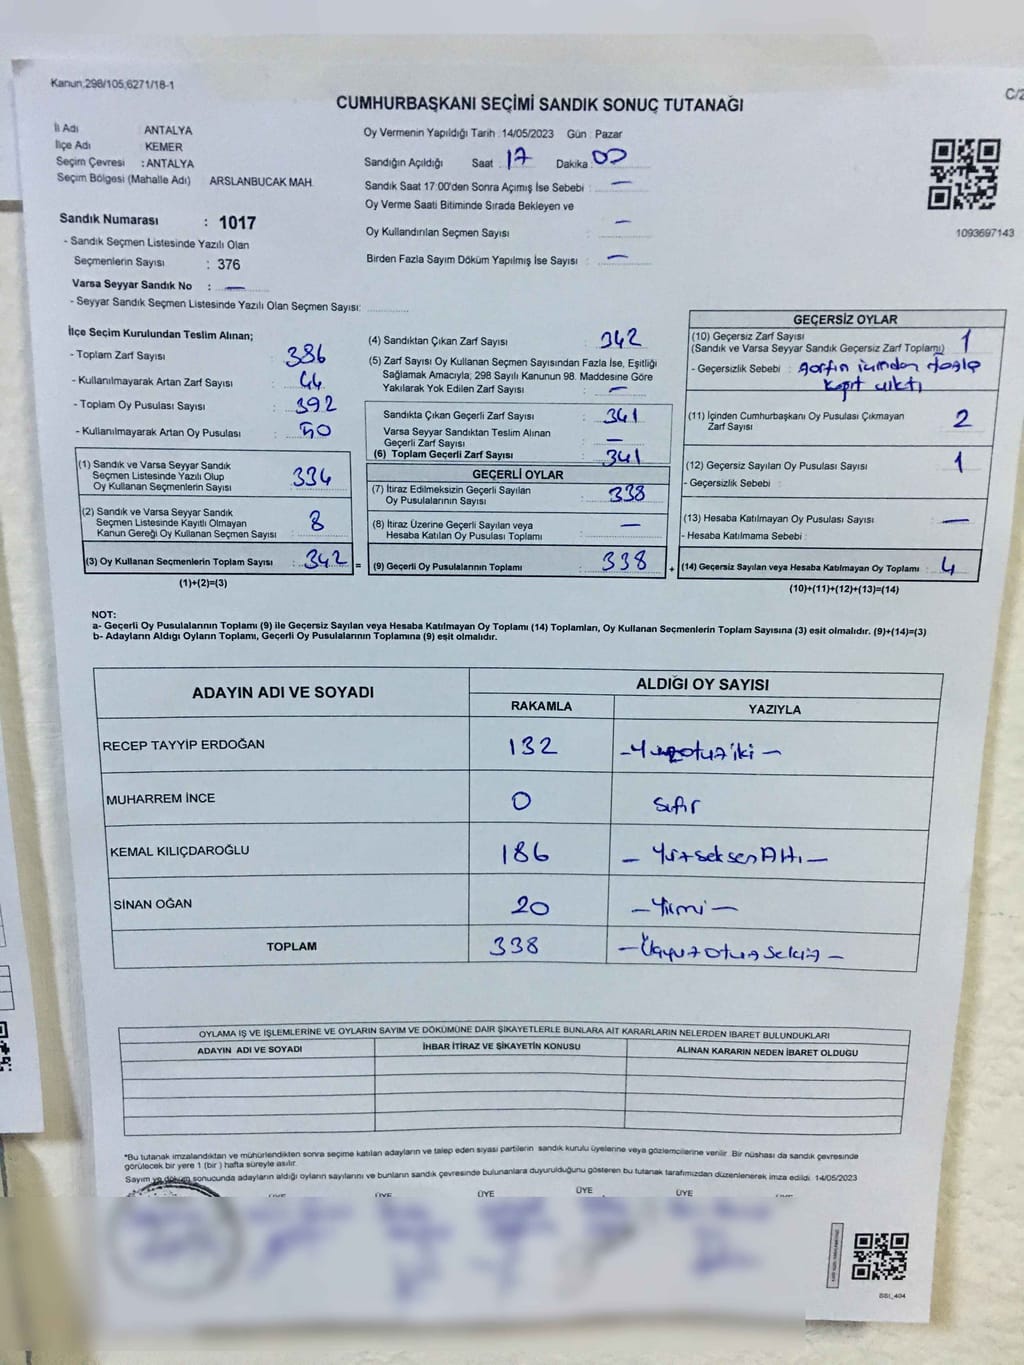 Kanun;298/105,6271/18-1
C/2
CUMHURBAŞKANI SEÇİMİ SANDIK SONUÇ TUTANAĞI
İl Adı : ANTALYA
İlçe Adı : KEMER
Seçim Çevresi : ANTALYA
Seçim Bölgesi (Mahalle Adı) ARSLANBUCAK MAH.
Oy Vermenin Yapıldığı Tarih : 14/05/2023 Gün : Pazar
Sandığın Açıldığı Saat : 17 Dakika : 00
Sandık Saat 17:00'den Sonra Açımış İse Sebebi : —
Oy Verme Saati Bitiminde Sırada Bekleyen ve
Oy Kullandırılan Seçmen Sayısı : —
Birden Fazla Sayım Döküm Yapılmış İse Sayısı : —
1093697143
Sandık Numarası : 1017
- Sandık Seçmen Listesinde Yazılı Olan
Seçmenlerin Sayısı : 376
Varsa Seyyar Sandık No : —
- Seyyar Sandık Seçmen Listesinde Yazılı Olan Seçmen Sayısı:
İlçe Seçim Kurulundan Teslim Alınan;
- Toplam Zarf Sayısı : 386
- Kullanılmayarak Artan Zarf Sayısı : 44
- Toplam Oy Pusulası Sayısı : 392
- Kullanılmayarak Artan Oy Pusulası : 50
(1) Sandık ve Varsa Seyyar Sandık
Seçmen Listesinde Yazılı Olup
Oy Kullanan Seçmenlerin Sayısı : 334
(2) Sandık ve Varsa Seyyar Sandık
Seçmen Listesinde Kayıtlı Olmayan
Kanun Gereği Oy Kullanan Seçmen Sayısı : 8
(3) Oy Kullanan Seçmenlerin Toplam Sayısı : 342 =
(1)+(2)=(3)
(4) Sandıktan Çıkan Zarf Sayısı : 342
(5) Zarf Sayısı Oy Kullanan Seçmen Sayısından Fazla İse, Eşitliği
Sağlamak Amacıyla; 298 Sayılı Kanunun 98. Maddesine Göre
Yakılarak Yok Edilen Zarf Sayısı : —
Sandıkta Çıkan Geçerli Zarf Sayısı : 341
Varsa Seyyar Sandıktan Teslim Alınan
Geçerli Zarf Sayısı : —
(6) Toplam Geçerli Zarf Sayısı : 341
GEÇERLİ OYLAR
(7) İtiraz Edilmeksizin Geçerli Sayılan
Oy Pusulalarının Sayısı : 338
(8) İtiraz Üzerine Geçerli Sayılan veya
Hesaba Katılan Oy Pusulası Toplamı : —
(9) Geçerli Oy Pusulalarının Toplamı : 338 +
GEÇERSİZ OYLAR
(10) Geçersiz Zarf Sayısı : 1
(Sandık ve Varsa Seyyar Sandık Geçersiz Zarf Toplamı)
- Geçersizlik Sebebi :
çıktı
(11) İçinden Cumhurbaşkanı Oy Pusulası Çıkmayan
Zarf Sayısı : 2
(12) Geçersiz Sayılan Oy Pusulası Sayısı : 1
- Geçersizlik Sebebi :
(13) Hesaba Katılmayan Oy Pusulası Sayısı : —
- Hesaba Katılmama Sebebi :
(14) Geçersiz Sayılan veya Hesaba Katılmayan Oy Toplamı : 4
(10)+(11)+(12)+(13)=(14)
NOT:
a- Geçerli Oy Pusulalarının Toplamı (9) ile Geçersiz Sayılan veya Hesaba Katılmayan Oy Toplamı (14) Toplamları, Oy Kullanan Seçmenlerin Toplam Sayısına (3) eşit olmalıdır. (9)+(14)=(3)
b- Adayların Aldığı Oyların Toplamı, Geçerli Oy Pusulalarının Toplamına (9) eşit olmalıdır.
ADAYIN ADI VE SOYADI ALDIĞI OY SAYISI
RAKAMLA YAZIYLA
RECEP TAYYİP ERDOĞAN 132 — Yüzotuziki —
MUHARREM İNCE 0 Sıfır
KEMAL KILIÇDAROĞLU 186 — YüzseksenAltı —
SİNAN OĞAN 20 — Yirmi —
TOPLAM 338 — ÜçyüzotuzSekiz —
OYLAMA İŞ VE İŞLEMLERİNE VE OYLARIN SAYIM VE DÖKÜMÜNE DAİR ŞİKAYETLERLE BUNLARA AİT KARARLARIN NELERDEN İBARET BULUNDUKLARI
ADAYIN ADI VE SOYADI İHBAR İTİRAZ VE ŞİKAYETİN KONUSU ALINAN KARARIN NEDEN İBARET OLDUĞU
*Bu tutanak imzalandıktan ve mühürlendikten sonra seçime katılan adayların ve talep eden siyasi partilerin sandık kurulu üyelerine veya gözlemcilerine verilir. Bir nüshası da sandık çevresinde
görülecek bir yere 1 (bir ) hafta süreyle asılır.
Sayım ve döküm sonucunda adayların aldığı oyların sayılarını ve bunların sandık çevresinde bulunanlara duyurulduğunu gösteren bu tutanak tarafımızdan düzenlenerek imza edildi. 14/05/2023
ÜYE ÜYE ÜYE ÜYE ÜYE
BBI_404